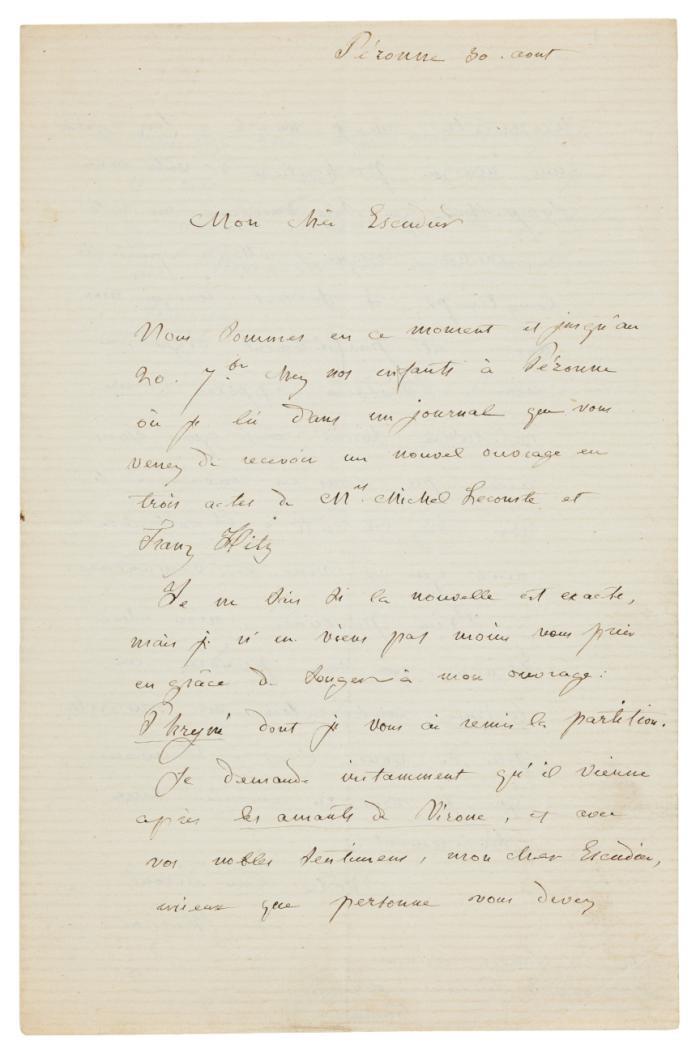 Péronne 30. aout
Mon cher Escudier
Nous sommes en ce moment et jusqu'au
20. 7.br chez nos enfants à Péronne
où je lis dans un journal que vous
venez de recevoir un nouvel ouvrage en
trois actes de Mrs. Michel Lecomte et
Franz Hitz
Je ne sais si la nouvelle est exacte,
mais je n'en viens pas moins vous prier
en grâce de songer à mon ouvrage:
Phryné dont je vous ai remis la partition.
Je demande instamment qu'il vienne
après les amants de Vérone, et avec
vos nobles sentimens, mon cher Escudier,
mieux que personne vous devez